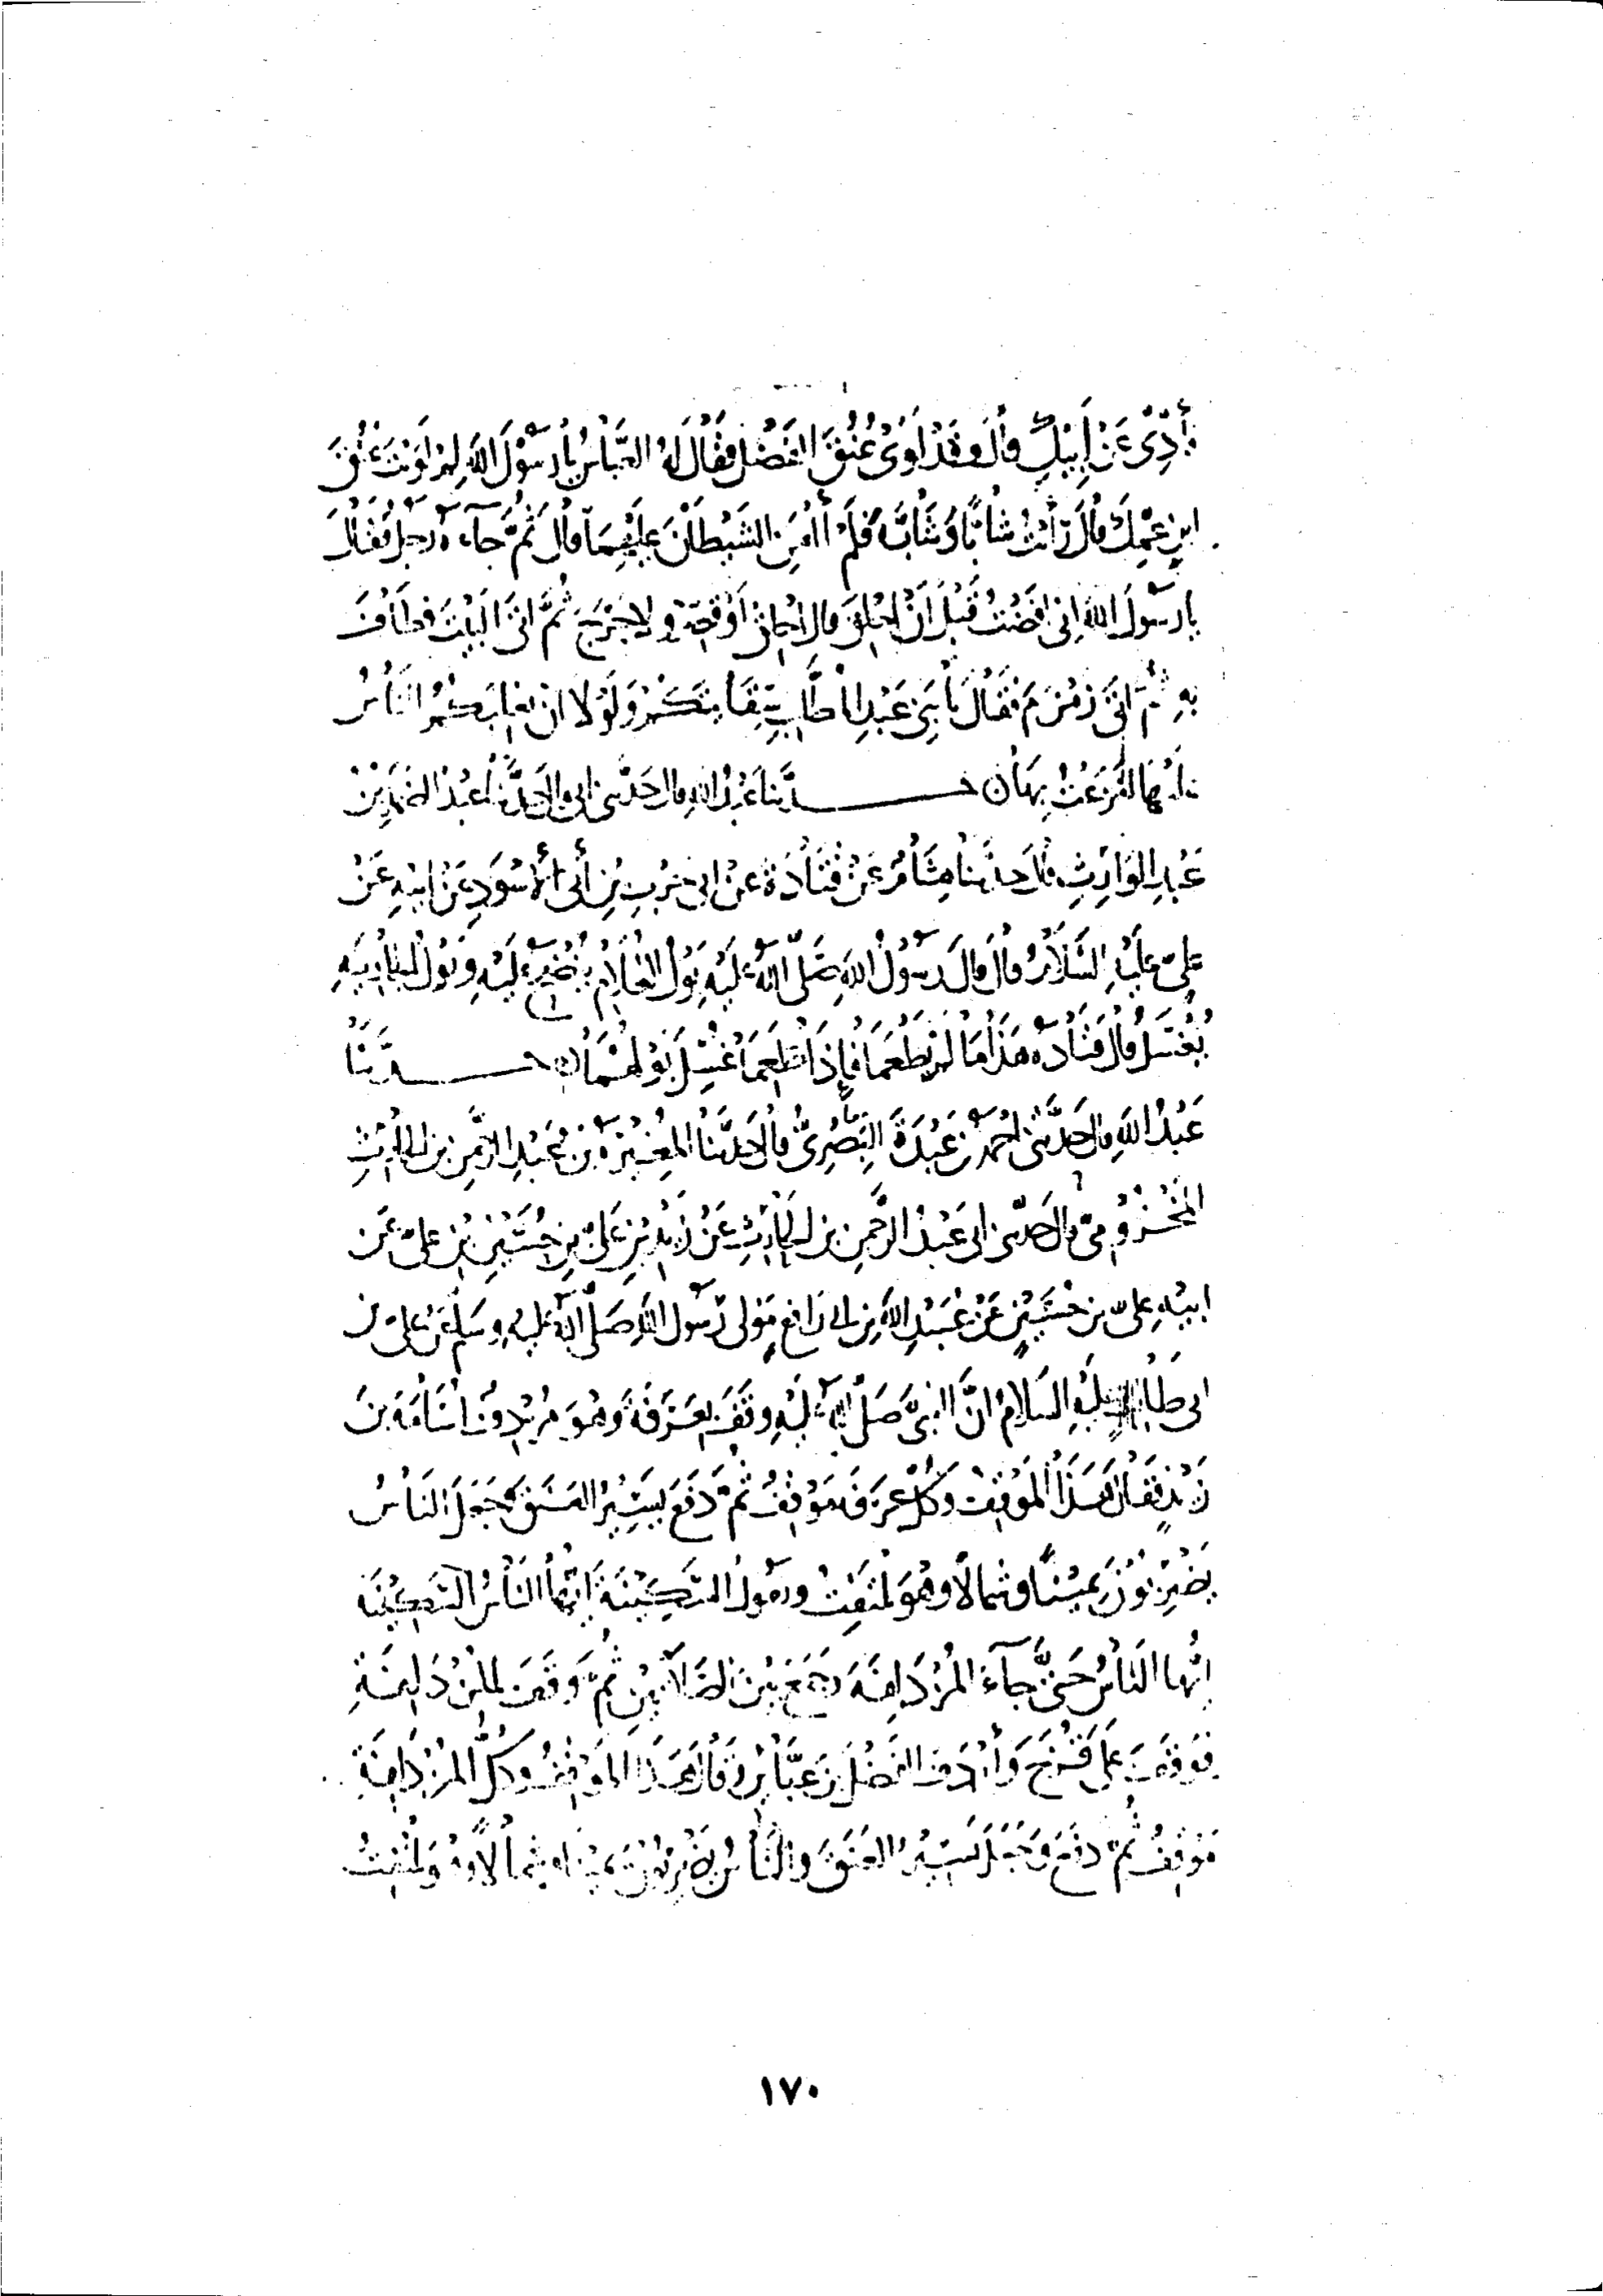 فأدِّى عَنْ أَبِيكِ قال وقَدْ لَوَى عُنُقَ الفَضْلِ فَقَالَ لَهُ العَبَّاسُ يا رَسُولَ اللهِ لِمَ لَوَيْتَ عُنُقَ
ابنِ عَمِّكَ قَالَ رَأَيْتُ شَابًّا وَشَابَّةً فَلَمْ أَأْمَنِ الشَيْطَانَ عَلَيْهِمَا قَالَ ثُمَّ جَاءَهُ رَجُلٌ فَقَالَ
يا رَسُولَ اللهِ إنى أَفَضْتُ قَبْلَ أَنْ أَحْلِقَ قال احْلِقْ أَوْ قَصِّرْ ولا حَرَجَ ثُمَّ أتَى البَيْتَ فطَافَ
بِهِ ثُمَّ أتَى زَمْزَمَ فَقَالَ يَا بَنِى عَبْدِ المُطَّلِبِ سِقَايَتَكُمْ وَلَوْلَا ان يَغْلِبَكُمُ النَّاسُ
عَلَيْهَا لَنَزَعْتُ بِهَا حـــــدَّثنا عَبْدُ اللهِ قال حَدَّثنى ابى قال حَدَّثنا عَبْدُ الصَّمَدِ بْنُ
عَبْدِ الوَارِثِ قال حَدَّثَنَا هِشَامٌ عَنْ قَتَادَةَ عَنْ ابى حَرْبِ بْنِ أَبى الأَسْوَدِ عَنْ ابِيهِ عَنْ
عَلِىٍّ عَلَيْهِ السَّلَامُ قَالَ قَالَ رَسُولُ اللهِ صَلَّى اللهُ عَلَيْهِ بَوْلُ الغُلَامِ يُنْضَحُ عَلَيْهِ وبَوْلُ الجَارِيَةِ
يُغْسَلُ قَالَ قَتَادَةُ هَذَا مَا لَمْ يَطْعَمَا فَإِذَا طَعِمَا غُسِلَ بَوْلُهُمَا حـــــدَّثَنَا
عَبْدُ اللهِ قال حَدَّثَنى أَحْمَدُ بن عَبْدَةَ البَصْرِىُّ قال حَدَّثَنَا المُغِيرَةُ بْنُ عَبْدِ الرَّحْمنِ بن الحَارِثِ
المَخْزُومِىُّ قال حَدَّثَنى ابى عَبْدُ الرَّحمنِ بن الحَارِثِ عَنْ زَيْدِ بْنِ عَلِىِّ بنِ حُسَيْنِ بْنِ عَلِىٍّ عَن
ابِيهِ عَلِىِّ بن حُسَيْنٍ عَنْ عُبَيْدِ اللهِ بنِ ابى رَافِعٍ مَوْلَى رَسُولِ اللهِ صَلَّى اللهُ عَلَيْهِ وسَلَّم عَنْ عَلِىِّ بن
ابى طَالِبٍ عَلَيْهِ السَلَامُ انَّ النَبِىَّ صَلَّى اللهُ عَلَيْهِ وقَفَ بِعَرَفَةَ وَهُوَ مُرْدِفٌ اسَامَةَ بنَ
زَيْدٍ فَقَالَ هَذَا الْمَوْقِفُ وَكُلُّ عَرَفَةَ مَوْقِفٌ ثُمَّ دَفَعَ يَسِيرُ العَنَقَ وَجَعَلَ النَاسُ
يَضْرِبُونَ يَمِيْنًا وشِمالًا وهُوَ يَلْتَفِتُ ويقُولُ السَّكِيْنَةَ ايُّهَا النَاسُ السَّكِيْنَةَ
ايُّها النَاسُ حَتَّى جَآءَ المُزْدَلِفَةَ وَجَمَعَ بَيْنَ الصَلاَتَيْنِ ثُمَّ وَقَفَ بِالمُزْدَلِفَةِ
فوَقَفَ عَلَى قُزَحَ وَأَرْدَفَ الفَضْلَ بنَ عَبَّاسٍ وَقَالَ هَذَا المَوْقِفُ وَكُلُّ المُزْدَلِفَةِ
مَوْقِفٌ ثُمَّ دَفَعَ وَجَعَلَ يَسِيْرُ العَنَقَ والنَّاسُ يَضْرِبُونَ يَمِيْنًا وشِمالًا وهُوَ يَلْتَفِتُ
١٧٠